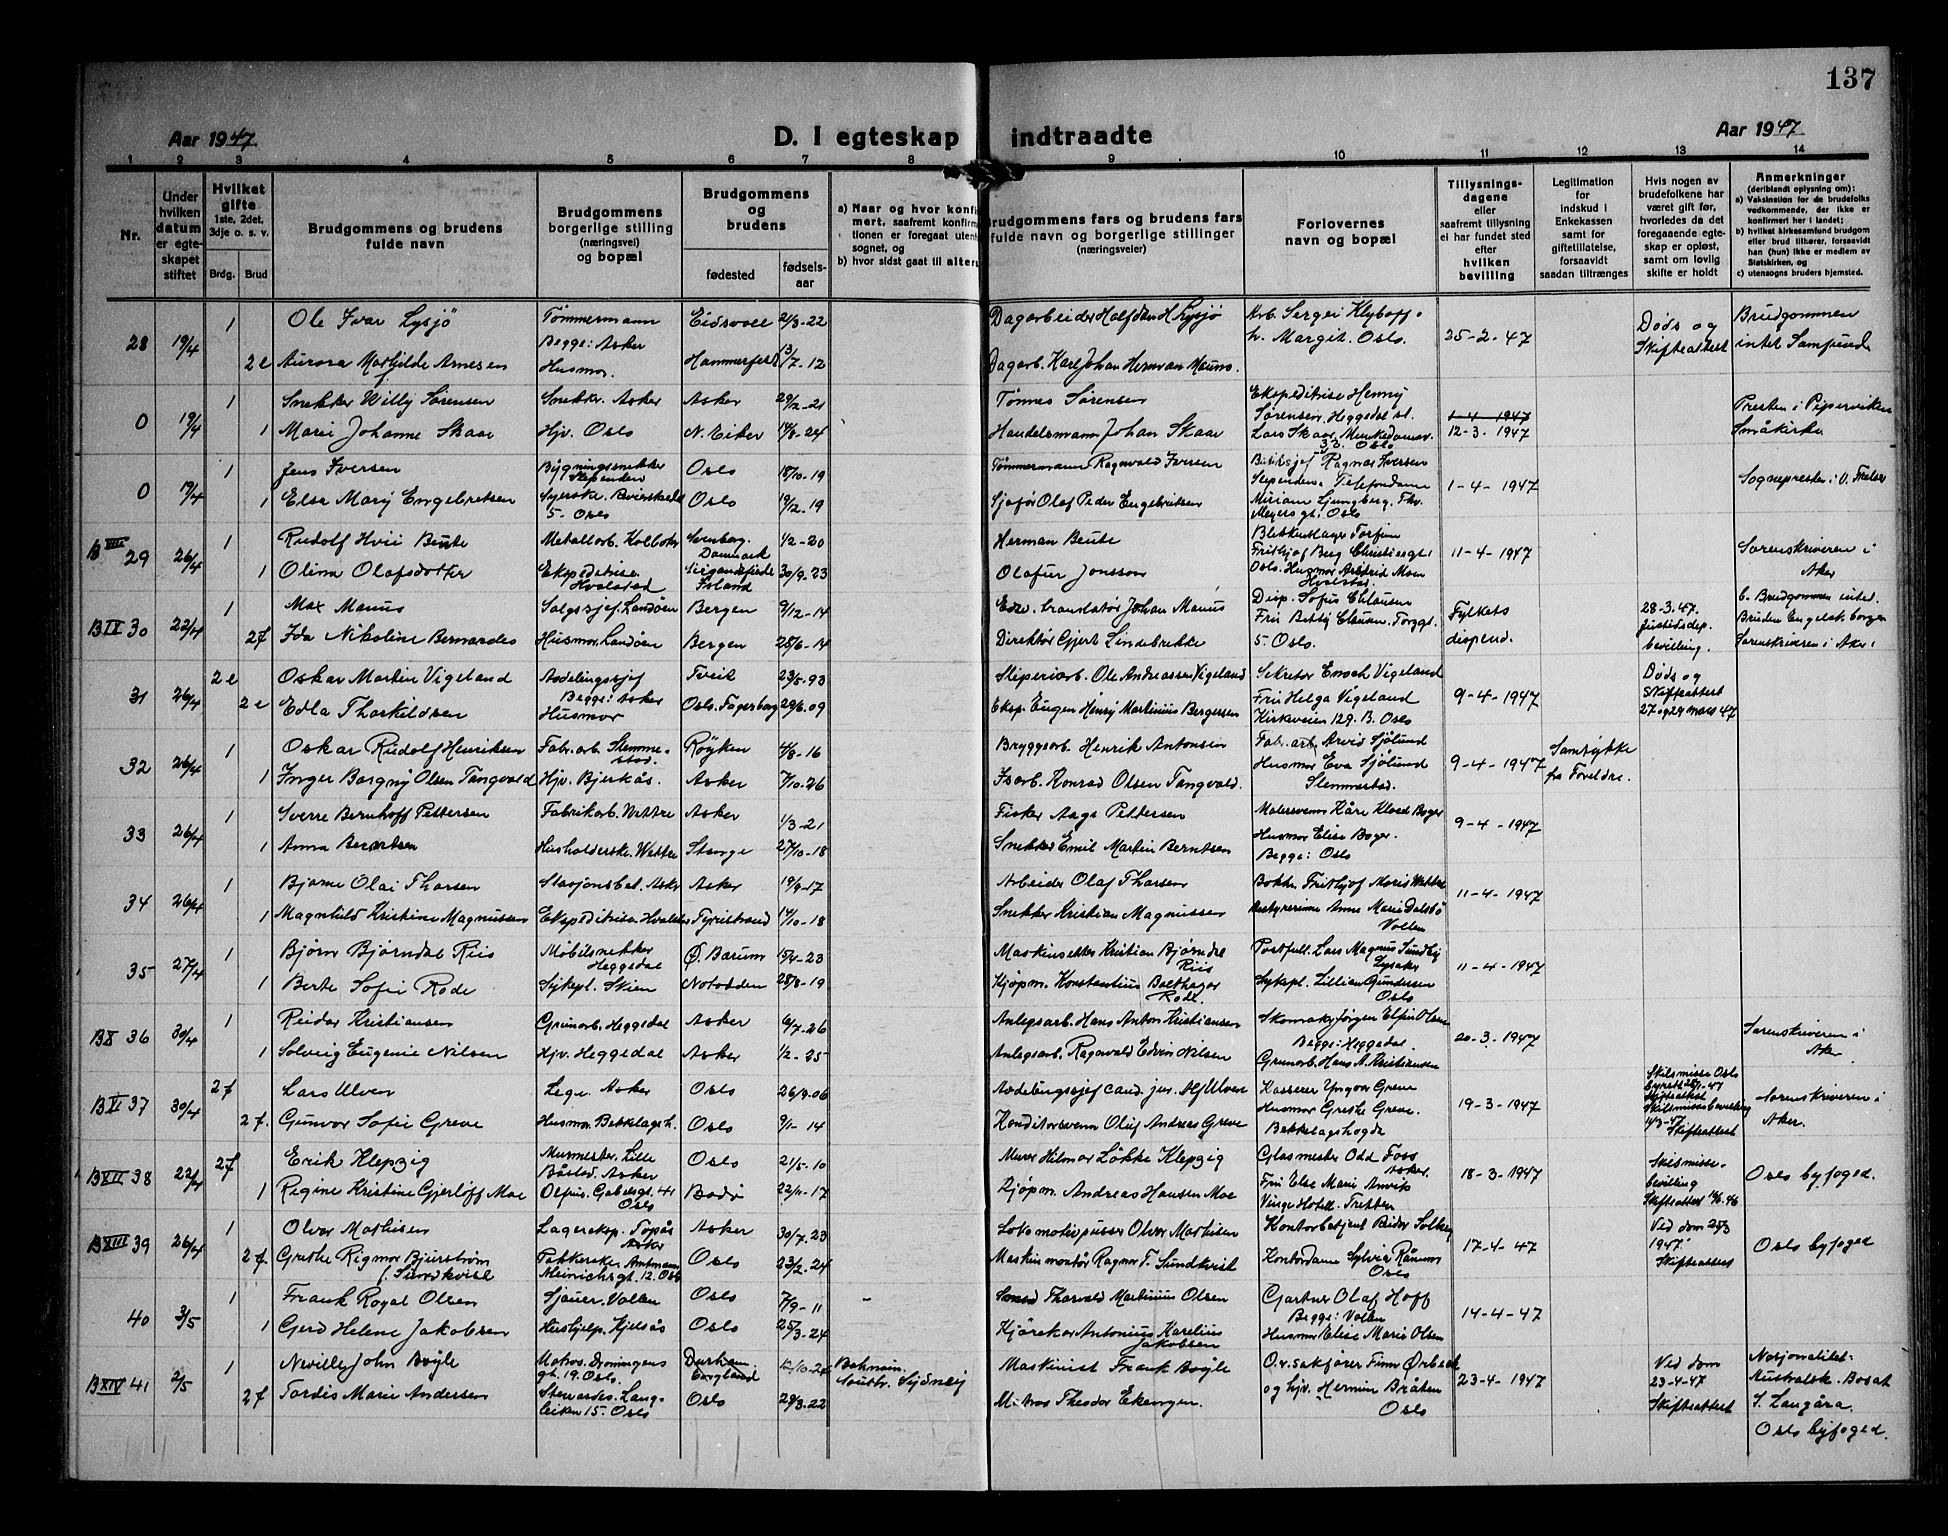 137
Aar 1947
D. I egteskap indtraadte
Aar 1947
1 2 3 4 5 6 7 8 9 10 11 12 13 14
Nr.
Under hvilken datum er egteskapet stiftet
Hvilket gifte
1ste, 2det, 3dje o. s. v.
Brdg. Brud
Brudgommens og brudens fulde navn
Brudgommens borgerlige stilling (næringsvei) og bopæl
Brudgommens og brudens
fødested
fødsels-aar
a) Naar og hvor konfir
mert, saafremt konfirma
tionen er foregaat utenfo
sognet, og
b) hvor sidst gaat til alters
Brudgommens fars og brudens fars
fulde navn og borgerlige stillinger
(næringsveier)
Forlovernes
navn og bopæl
Tillysnings-
dagene
eller
saafremt tillysning
ei har fundet sted
efter
hvilken
bevilling
Legitimation
for
indskud i
Enkekassen
samt for
giftetillatelse,
forsaavidt
saadan tiltrænges
Hvis nogen av
brudefolkene har
været gift før,
hvorledes da det
foregaaende egte-
skap er opløst,
samt om lovlig
skifte er holdt
Anmerkninger
(deriblandt oplysning om):
a) Vaksination for de brudefolks
vedkommende, der ikke er
konfirmert her i landet;
b) hvilket kirkesamfund brudgom
eller brud tilhører, forsaavidt
han (hun) ikke er medlem av
Statskirken, og
c) utensogns bruders hjemsted.
28 19/4 1 Ole Ivar Lysjö Tömmermann Eidsvoll 21/3-22 Dagarbeider Halfdan H Lysjö
Begge: Asker
2 e Aurora Mathilde Arnesen Husmor. Hammerfest 13/7-12 Dagarb. Karl Johan Herman Mauno.
h. Margit. Oslo. 25-2-47 Døds og Skifteattest Brudgommen intet Samfund
0 19/4 1 Snekker Willy Sörensen Snekker. Asker Asker 29/12-21 Tönnes Sørensen
1 Marie Johanne Skaar Hjv. Oslo N. Eiker 14/8-24 Handelsmann Johan Skaar
Ekspeditrise Henny Sørensen, Heggedal st. Lars Skaar, Munkedamsv. 33. Oslo
1-4-1947 12-3-1947 Presten i Pipervikens Småkirke
0 19/4 1 Jens Iversen Bygningssnekker Slependen Oslo 18/10-19 Tömmermann Ragnvald Iversen
1 Else Mary Engebretsen Oslo 19/12-19 Sjaför Olaf Peder Engebretsen
5. Oslo
Ragnar Iversen Slependen. Telefondame Miriam Ljungberg. Thv. Meyersgt. Oslo
1-4-1947 Sognepresten i V. Frelser
B VIII 29 26/4 1 Rudolf Hvii Beute Metallarb. Kolbotn Danmark 1/2-20 Herman Beute
1 Olina Olafsdotter Ekspeditrise. Hvalstad Island 30/9-23 Olafur Jonsson
Blikkenslager Torfinn Frithjof Berg Oslo. Husmor Astrid Moen Hvalstad.
11-4-1947 Sorenskriveren i Aker
B IX 30 22/4 1 Max Manus Salgssjef. Landöen Bergen 9/12-14 Edv. translatør Johan Manus
2 f Ida Nikoline Bernardes Husmor. Landöen Bergen 25/6-14 Direktör Gjert Lindebrekke
Disp. Sofus Clausen Fru Betsy Clausen. Torggt. 5. Oslo.
Fylkets dispens. 28-3.47. Justisdep. bevilling. b. Brudgommen intet. Bruden Engelsk borger Sorenskriveren i Aker
31 26/4 2 e Oskar Martin Vigeland Avdelingssjef Tveit 23/5-93 Sliperiarb. Ole Andreassen Vigeland
Begge: Asker
2 e Edla Thorkildsen Husmor Oslo. Fagerborg 29/6.09 Eksp. Eugen Henry Martinius Bergersen
Sekretær Enoch Vigeland Fru Helga Vigeland Kirkeveien 129. B. Oslo
9-4-1947 Døds og Skifteattest 27 og 29 mars 47
32 26/4 1 Oskar Rudolf Henriksen Fab. arb. Slemmestad. Røyken 4/8-16 Bryggearb. Henrik Antonsen
1 Inger Borgny Olsen Tangvald Hjv. Bjerkås. Asker 7/10-26 Isarb. Konrad Olsen Tangvald.
Fab. arb. Arvid Sjölund Husmor Eva Sjölund Slemmestad.
9-4-1947 Samtykke fra Foreldre.
33 26/4 1 Sverre Bernhoff Pettersen Fabrikarb. Vettre Asker 1/3-21 Fisker Aage Pettersen
1 Anna Berntsen Husholderske. Vettre Stange 27/10-18 Snekker Emil Martin Berntsen
Malersvenn Kåre Kloed Boger Husmor Elise Boger. Begge: Oslo
9-4-1947
34 26/4 1 Bjarne Olai Thorsen Stasjonsbet. Asker Asker 19/9-17 Arbeider Olaf Thorsen
1 Magnhild Kristine Magnussen Ekspeditrise. Hvalstad Tyristrand 14/10-18 Snekker Kristian Magnussen
Bokh. Frithjof Moris Vettre Bestyrerinne Anne Marie Dalsbö Vollen
11-4-1947
35 27/4 1 Björn Björndal Riis Möbelsnekker Heggedal Ø. Bærum 15/4-23 Maskinsetter Kristian Björndal Riis
1 Berte Sofie Rode Sykepl. Skien Notodden 28/8-19 Kjöpm. Konstantius Balthazar Rode.
Portfull. Lars Magnus Sundby Lysaker Sykepl. Lillian Gundersen Oslo
11-4-1947
B X 36 30/4 1 Reidar Kristiansen Grunarb. Heggedal Asker 6/7-26 Anlegsarb. Hans Anton Kristiansen
1 Solveig Eugenie Nilsen Hjv. Heggedal Asker 1/2-25 Anlegsarb. Ragnvald Edvin Nilsen
Skomaker Jörgen Elfin Olsen Begge: Heggedal Grunarb. Hans A. Kristiansen
20-3.1947 Sorenskriveren i Aker
B XI 37 30/4 2 f Lars Ulven Lege. Asker Oslo 26/9-06 Avdelingssjef cand. jur. Alf Ulven
2 f. Gunvor Sofie Greve Husmor Bekkelagsh. Oslo 9/1-14 Konditorsvenn Oluf Andreas Greve
Kasserer Yngvar Greve Husmor Grethe Greve. Bekkelagshøgda
19-3-1947 Skilsmisse Oslo Skifteattest Skilsmissebevilling Skifteattest Sorenskriveren i Aker.
B XII 38 22/4 2 f Erik Klepzig Murmester. Lille Båstad. Asker Oslo 21/5-10 Murer Hilmar Løkke Klepzig
1 Regine Kristine Gjerlöff Moe Gabelsgt. 41 Oslo Bodö 22/11-17 Kjöpm. Andreas Hansen Moe
Glasmester Odd Foss Asker. Fru Else Marie Hotell. Tretten
18-3-1947 Skilsmisse-bevilling Skifteattest Oslo byfoged.
B XIII 39 26/4 1 Olvar Mathisen Lagereksp. Asker Asker 30/7.23 Lokomotivpusser Olvar Mathisen
2 f. Grethe Rigmor Bjurström f. Sundkvist Pakkerske. Amtmann Meinichsgt. 12. Oslo Oslo 23/2.24 Maskinmontör Ragnar T. Sundkvist
Kontorbetjent Reidar Solberg Kontordame Sylvia Rånum Oslo
17-4-47 Ved dom 29/3 1947. Skifteattest Oslo byfoged
40 3/5 1 Frank Royal Olsen Sjauer. Vollen Oslo 7/9-11 - Thorvald Martinius Olsen
1 Gerd Helene Jakobsen Hushjelp. Kjelsås Oslo 25/3-24 Kjörekar Antonius Karelius Jakobsen
Gartner Olaf Hoff Begge: Vollen Husmor Elise Marie Olsen
14-4-47
B XIV 41 2/5 1 Neville John Boyle Matros. Dronningens gt. 19. Oslo. Durham. England 12/10-24 Sydney Maskinist Frank Boyle
2 f Tordis Marie Andersen Stewardess. Langleiken 15. Oslo Oslo 29/3.22 Matros Theodor Ekengren.
O.r. sakförer Finn Ørbæk og hjv. Hermin Bråten Oslo
23-4-1947 Ved dom 23-4-47 Skifteattest Nasjonalitet- Australsk. Bosat S. Langåra. Oslo byfoged.